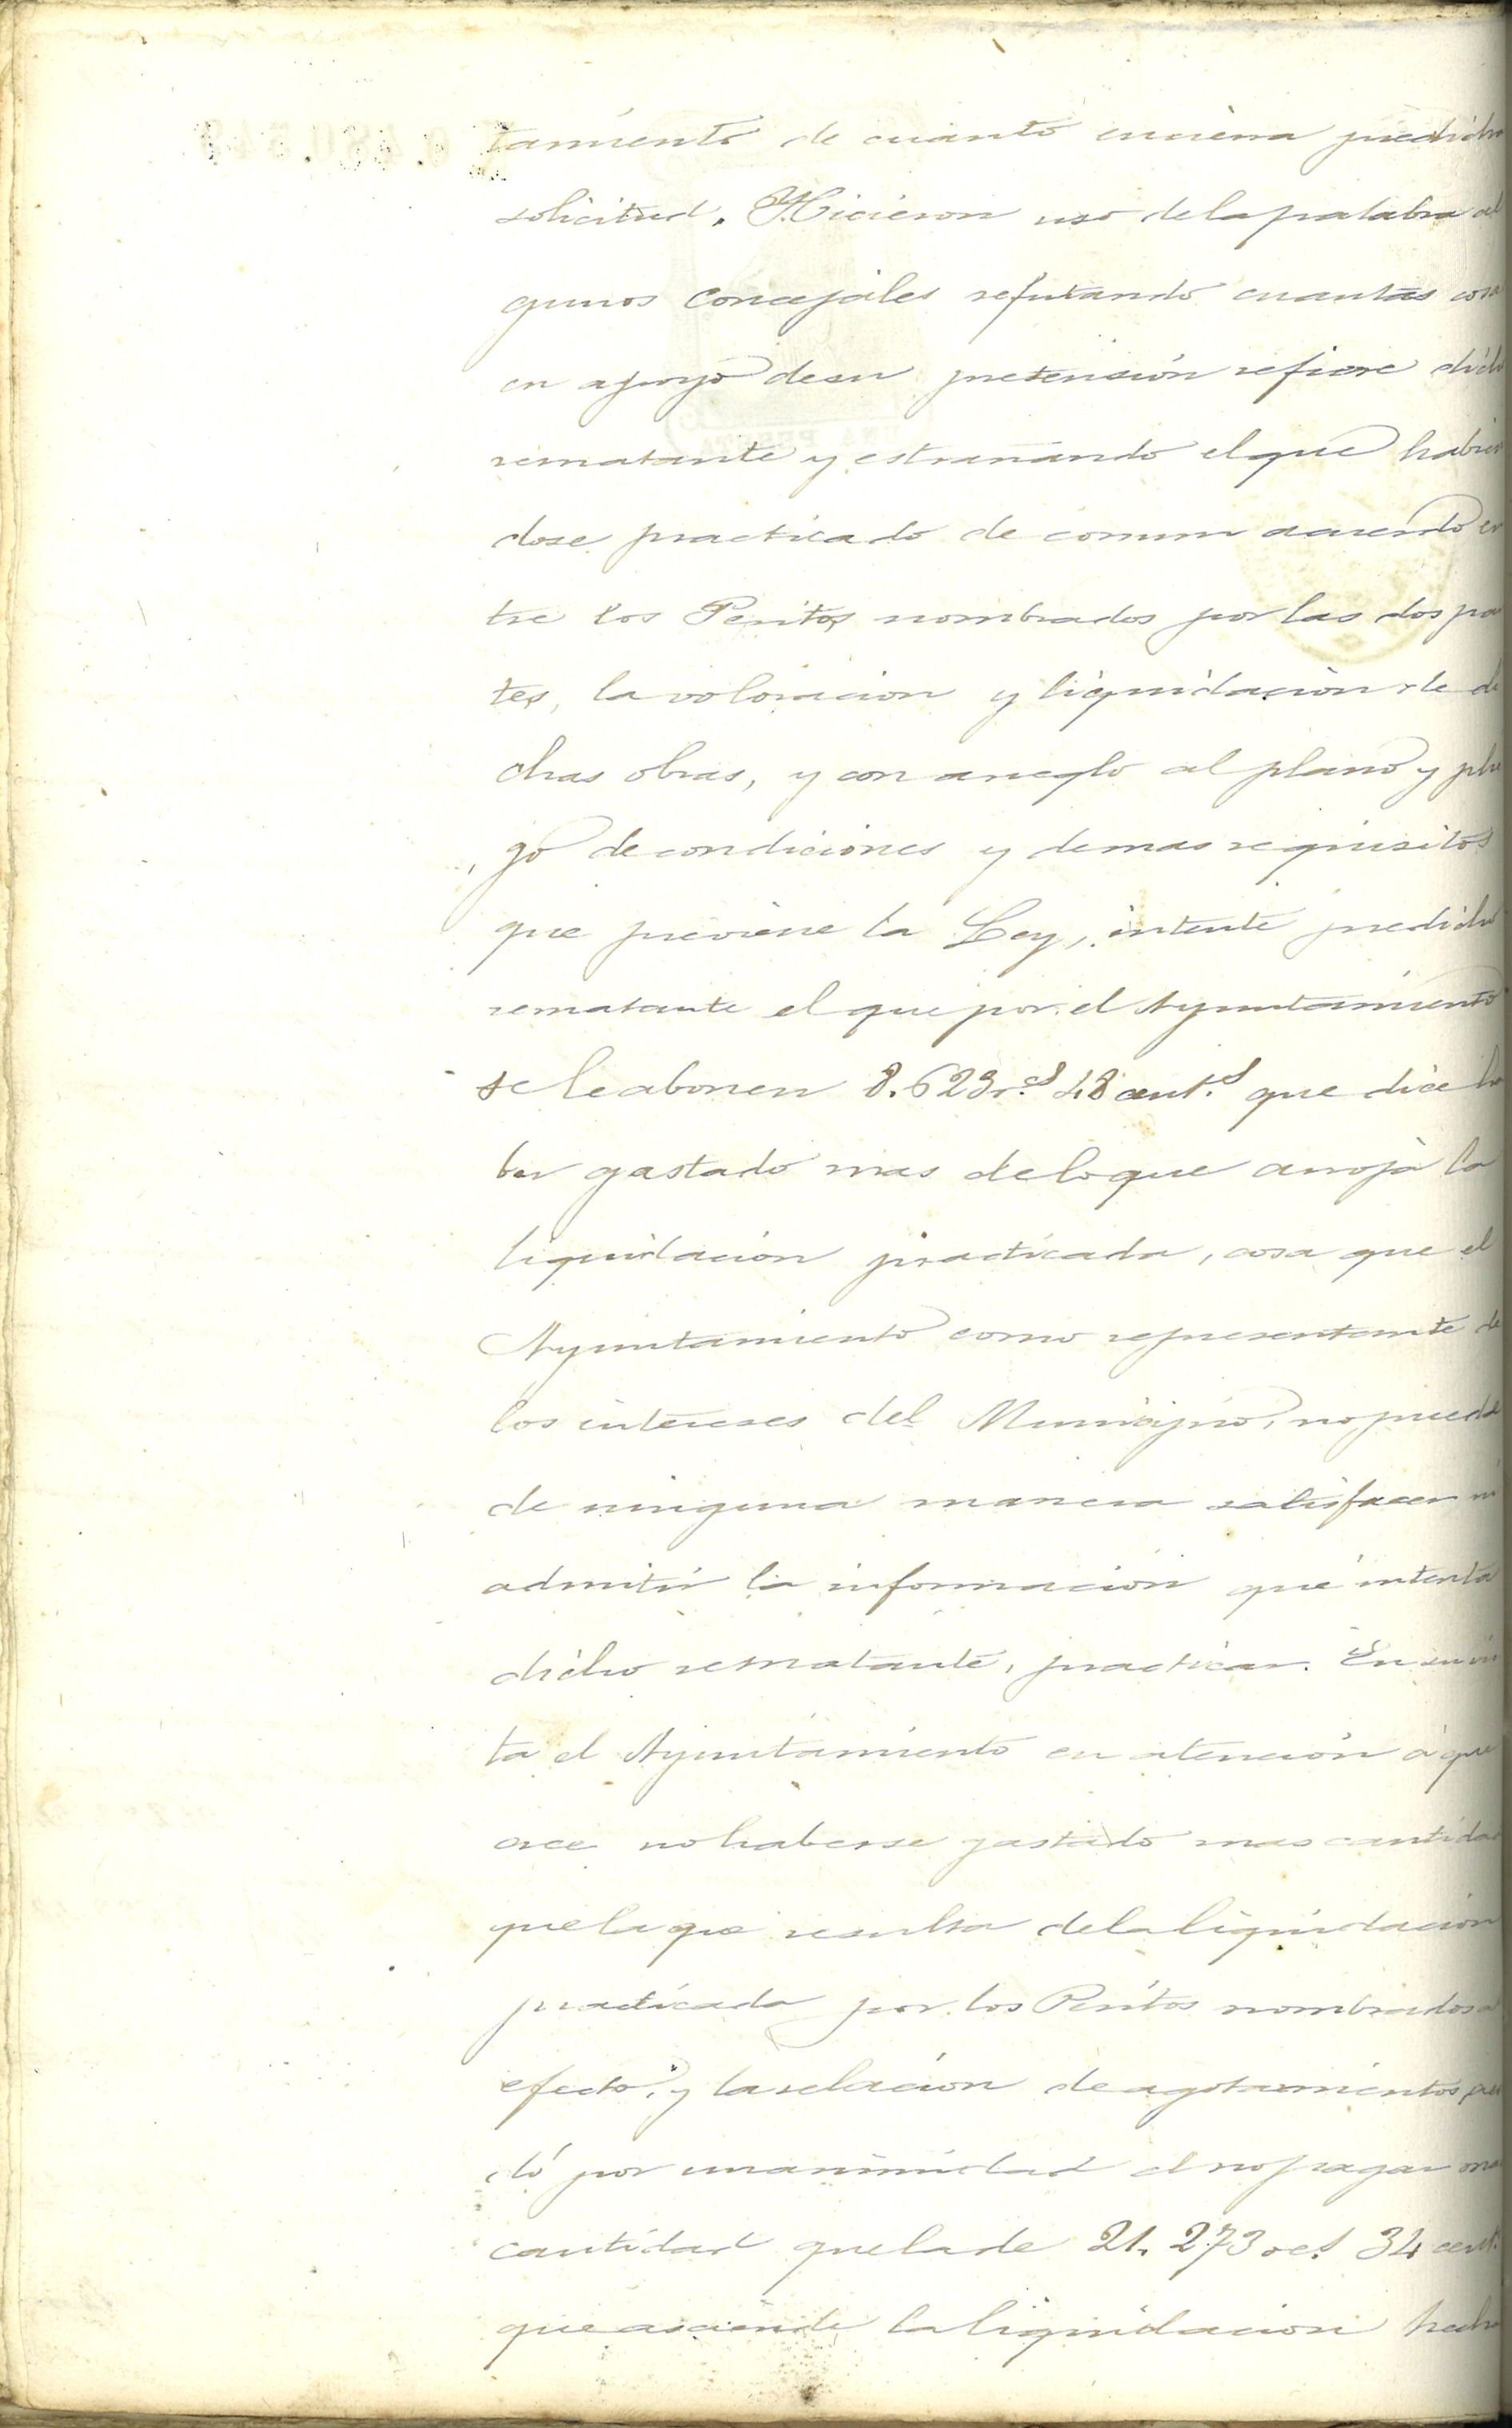 tamiento de cuanto encierra predicha
solicitud. Hicieron uso de la palabra al
gunos Concejales refutando cuantas cosa
en apoyo de su pretensión refiere dicho
rematante y estrañando el que habien
dose practicado de comun acuerdo en
tre los Peritos nombrados por las dos par
tes, la voloracion y liquidacion de di
chas obras, y con arreglo al plano y plie
go de condiciones y demas requisitos
que previene la Ley, intente predicho
rematante el que por el Ayuntamiento
se le abonen 8.623 r.s 48 cent.s que dice ha
ber gastado mas de lo que arroja la
liquidacion practicada, cosa que el
Ayuntamiento como representante de
los intereses del Municipio, no puede
de ninguna manera satisfacer ni
admitir la informacion que intenta
dicho rematante, practicar. En su vis
ta el Ayuntamiento en atencion á que
cree no haberse gastado mas cantidad
que la que resulta de la liquidacion
practicada por los Peritos nombrados al
efecto, y la relacion de agotamientos, acor
dó por unanimidad el no pagar mas
cantidad que la de 21.273 rs 34 cent.
que asciende la liquidacion hecha